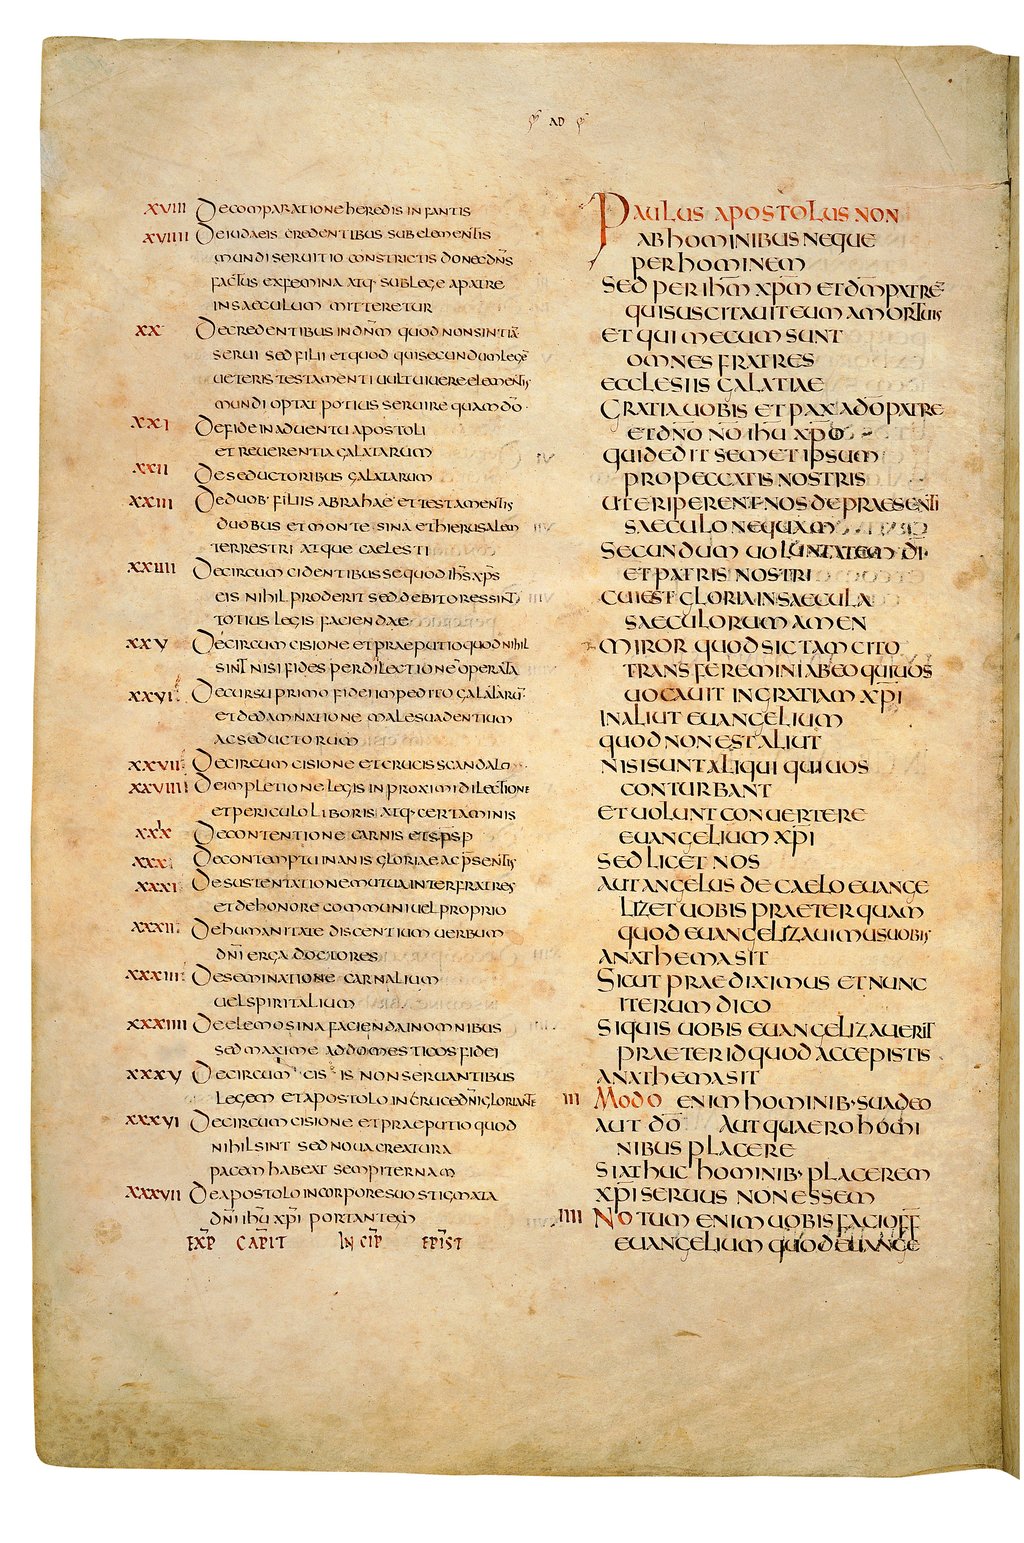 AD
XVIII De comparatione heredis infantis
XVIIII De iudaeis credentibus sub elementis
mundi seruitio constrictis donec dn̄s
factus ex femina atq· sub lege a patre
in saeculum mitteretur
XX De credentibus in dn̄m quod non sint ia
serui sed filii et quod qui secundum legē
ueteris testamenti uult uiuere elementis
mundi optat potius seruire quam dō·
XXI De fide in aduentu apostoli
et reuerentia galatarum
XXII De seductoribus galatarum
XXIII De duob· filiis abrahae et testamentis
duobus et monte sina et hierusalem
terrestri atque caelesti
XXIIII De circumcidentibus se quod ih̄s xp̄s
eis nihil proderit sed debitores sint
totius legis faciendae
XXV De circumcisione et praeputio quod nihil
sint nisi fides per dilectionē operata
XXVI De cursu primo fidei impedito galatarū
et de damnatione male suadentium
ac seductorum
XXVII De circumcisione et crucis scandalo
XXVIIII De impletione legis in proximi dilectione
et periculo liboris atq· certaminis
XXX De contentione carnis et sp̄s
XXX De contemptu inanis gloriae ac p̄sentis
XXXI De sustentatione mutua inter fratres
et de honore communi uel proprio
XXXII De humanitate discentium uerbum
dn̄i erga doctores
XXXIII De seminatione carnalium
uel spiritalium
XXXIIII De elemosina facienda in omnibus
sed maxime ad domesticos fidei
XXXV De circumcisis non seruantibus
legem et apostolo in cruce dn̄i gloriante
XXXVI De circumcisione et praeputio quod
nihil sint sed noua creatura
pacem habeat sempiternam
XXXVII De apostolo in corpore suo stigmata
dn̄i ih̄u xp̄i portantem
EXP CAPIT INCIP EPIST
Paulus apostolus non
ab hominibus neque
per hominem
Sed per ih̄m xp̄m et dm̄ patrē
qui suscitauit eum a mortuis
et qui mecum sunt
omnes fratres
ecclesiis galatiae
Gratia uobis et pax a dō patre
et dn̄o nō ih̄u xp̄o
qui dedit semetipsum
pro peccatis nostris
ut eriperet nos de praesenti
saeculo nequam
secundum uoluntatem dī
et patris nostri
cui est gloria in saecula
saeculorum amen
miror quod sic tam cito
transferemini ab eo qui uos
uocauit in gratiam xp̄i
in aliut euangelium
quod non est aliut
nisi sunt aliqui qui uos
conturbant
et uolunt conuertere
euangelium xp̄i
sed licet nos
aut angelus de caelo euange
lizet uobis praeterquam
quod euangelizauimus uobis
anathema sit
Sicut praediximus et nunc
iterum dico
Siquis uobis euangelizauerit
praeter id quod accepistis
anathema sit
III Modo enim hominib· suadeo
aut dō aut quaero homi
nibus placere
si adhuc hominib· placerem
xp̄i seruus non essem
IIII Notum enim uobis facio ff
euangelium quod euange